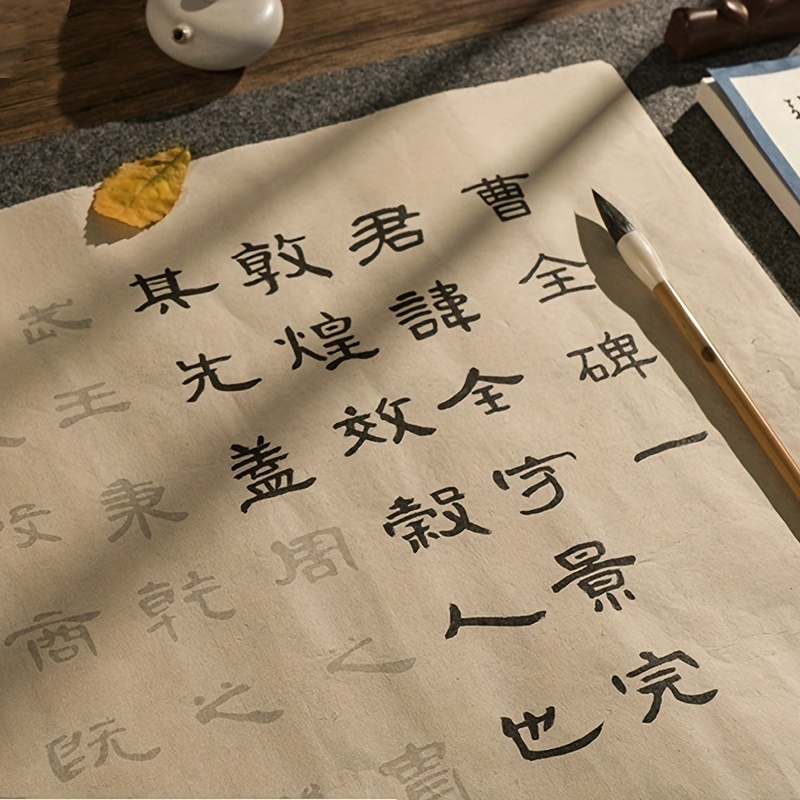 曹全碑一
君諱全字景完
敦煌效穀人也
其先蓋周之胄
武王秉乾之
商既